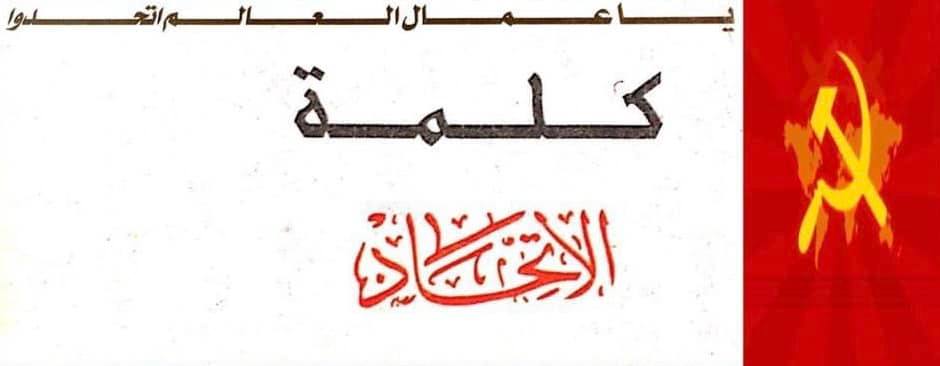 يا عمال العالم اتحدوا
كلمة
الاتحاد